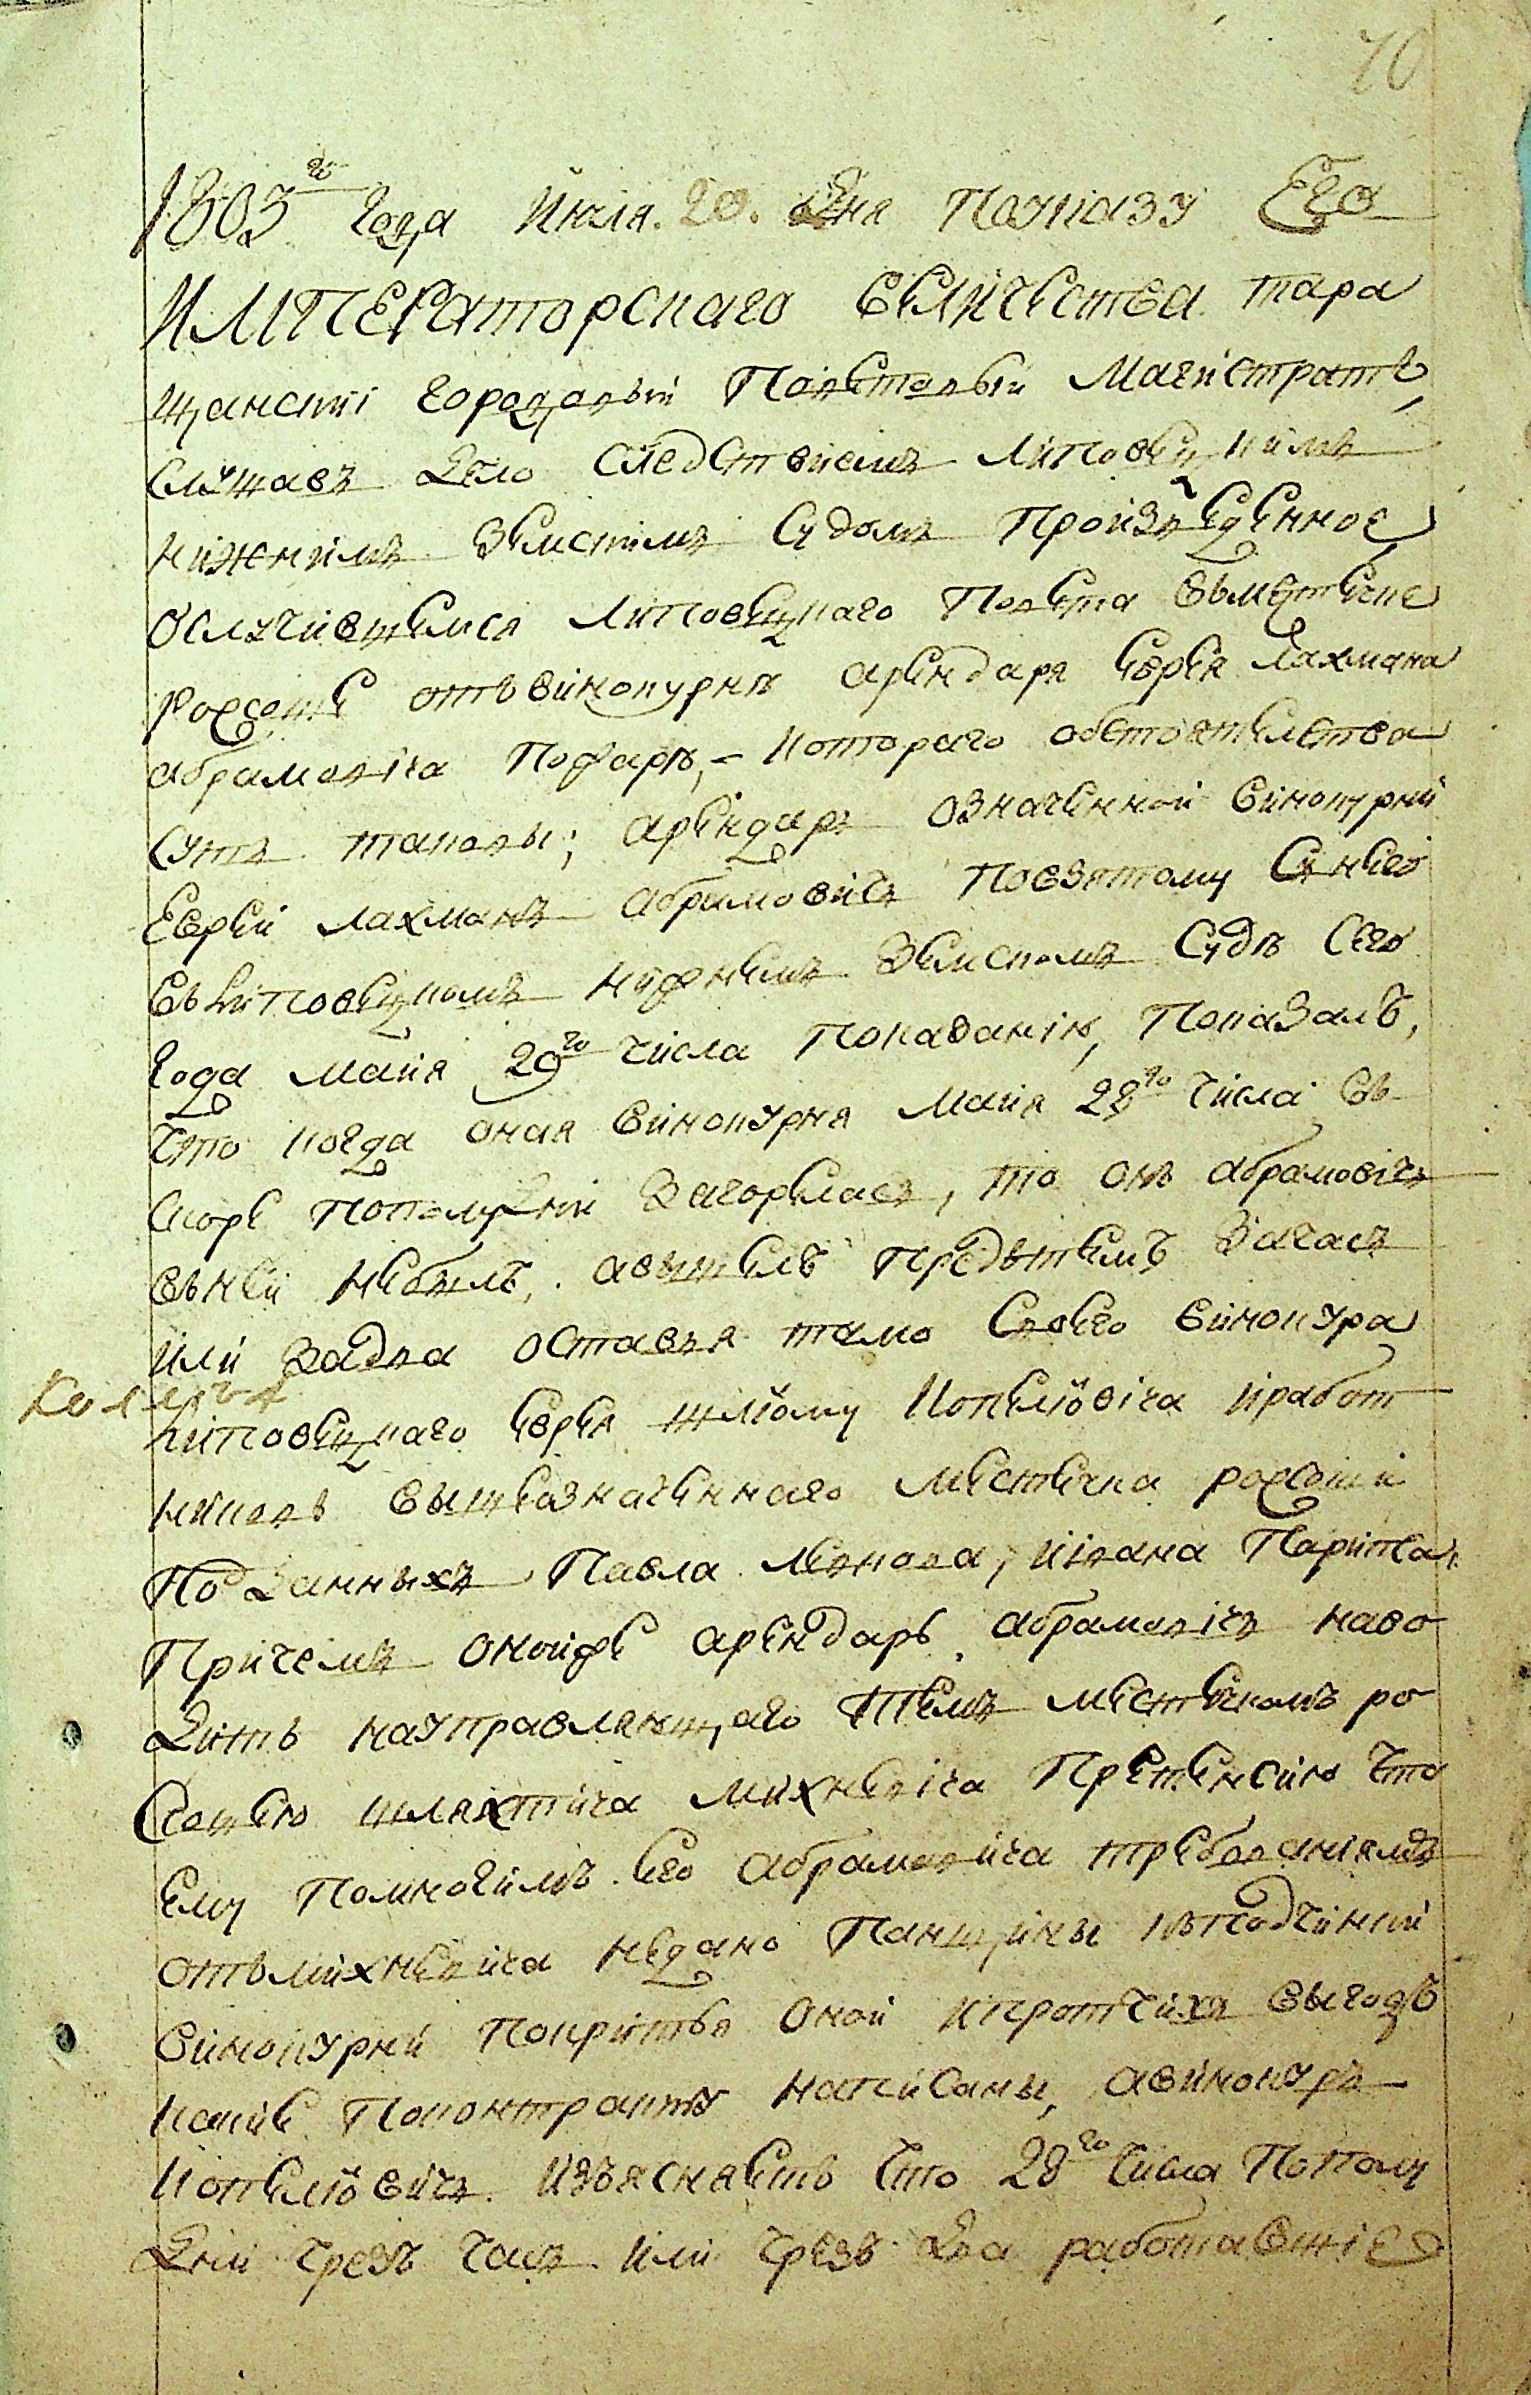 70
1803го года Июля. 20. дня По указу Его
ИМПЕРаторскаго величества тара
щанский городовый Поветовый Магистратъ,
слушавъ дело следствиемъ Липовецкимъ
нижнимъ Земскимъ Судомъ Произведенное
О случившемся Липовецкаго Повета вместечке
Росоше отъ винокурнѣ арендаря еврея Лахмана
абрамовича Пожарѣ, – котораго обстоятелства
суть таковы; арендаръ означенной винокурни
Еврей Лахманъ абрамовичъ Повзятому Снего
въ Липовецкомъ нижнемъ Земскомъ Судѣ Сего
года майя 29го числа Показанию, Показалъ,
что когда оная винокурня майя 28го числа въ
скоре Пополудни Загореласъ, то онъ абрамовичъ
въ ней небылъ, авышелъ Предътемъ Зачасъ
или Задва оставя тамо Своего винокура
Липовецкаго еврея шлиому Копелиовича иработ
никовъ вышеозначеннаго местечка росоши
Подданныхъ Павла Леонова, ивана Парипса,
Притемъ онойже арендарь абрамовичъ наво
дитъ науправляющаго Темъ местечкомъ ро
сошею шляхтича Михневича Претенсию что
ему Помногимъ его абрамовича требованиямъ
отъ михневича недано Панщины кПодчинки
винокурни Покритья оной ипротчихъ выгодъ
какие Поконтракту написаны, авинокуръ
Копелиовичъ изъясняетъ что 28го числа Пополу
дни чрезъ часъ или чрезъ два работавшие